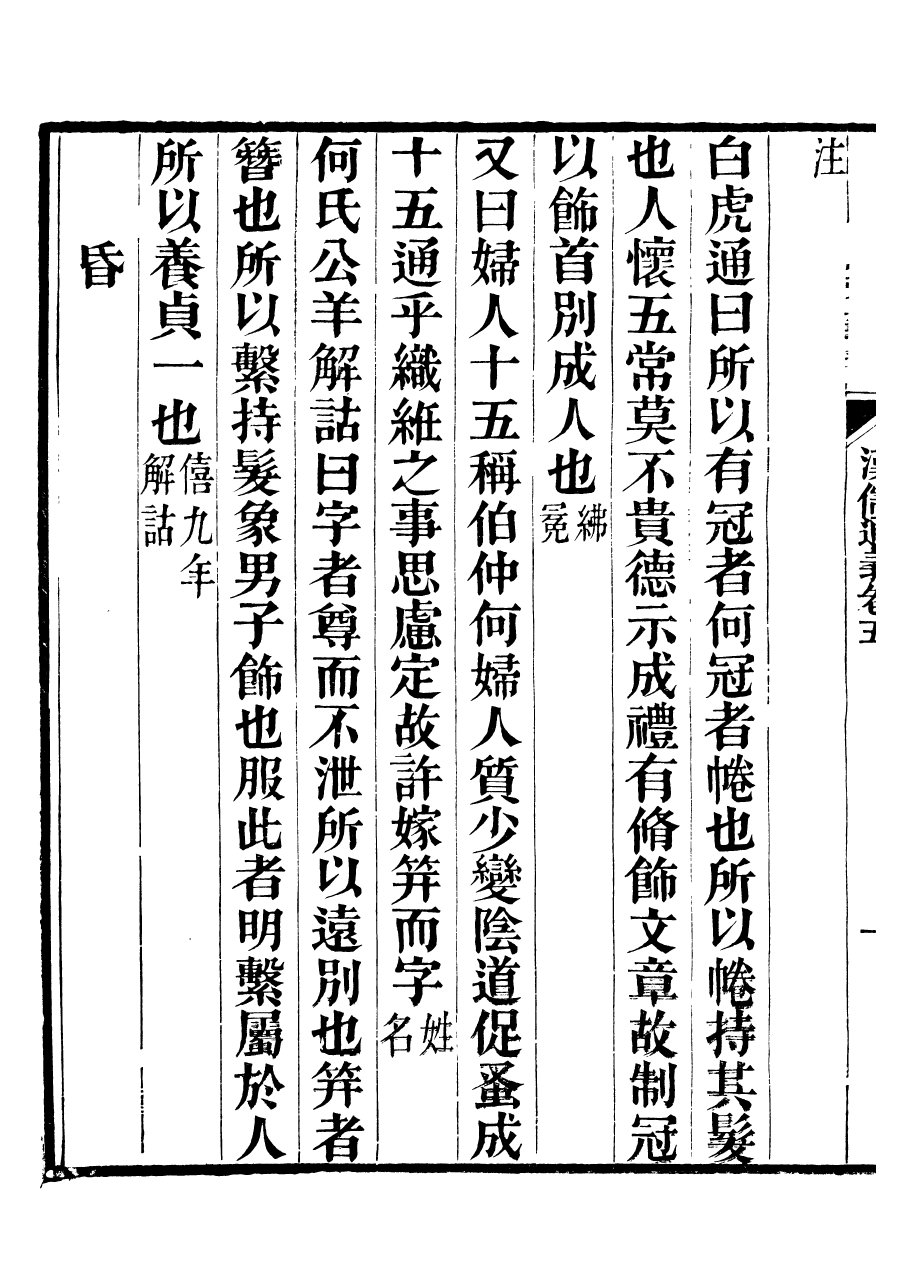 注
白虎通曰所以有冠者何冠者帣也所以帣持其髮
也人懷五常莫不貴德示成禮有脩飾文章故制冠
以飾首別成人也紼冕
又曰婦人十五稱伯仲何婦人質少變陰道促蚤成
十五通乎織絍之事思慮定故許嫁笄而字姓名
何氏公羊解詁曰字者尊而不泄所以遠別也笄者
簪也所以繫持髮象男子飾也服此者明繫屬於人
所以養貞一也僖九年解詁
昏
漢儒通義卷五
一